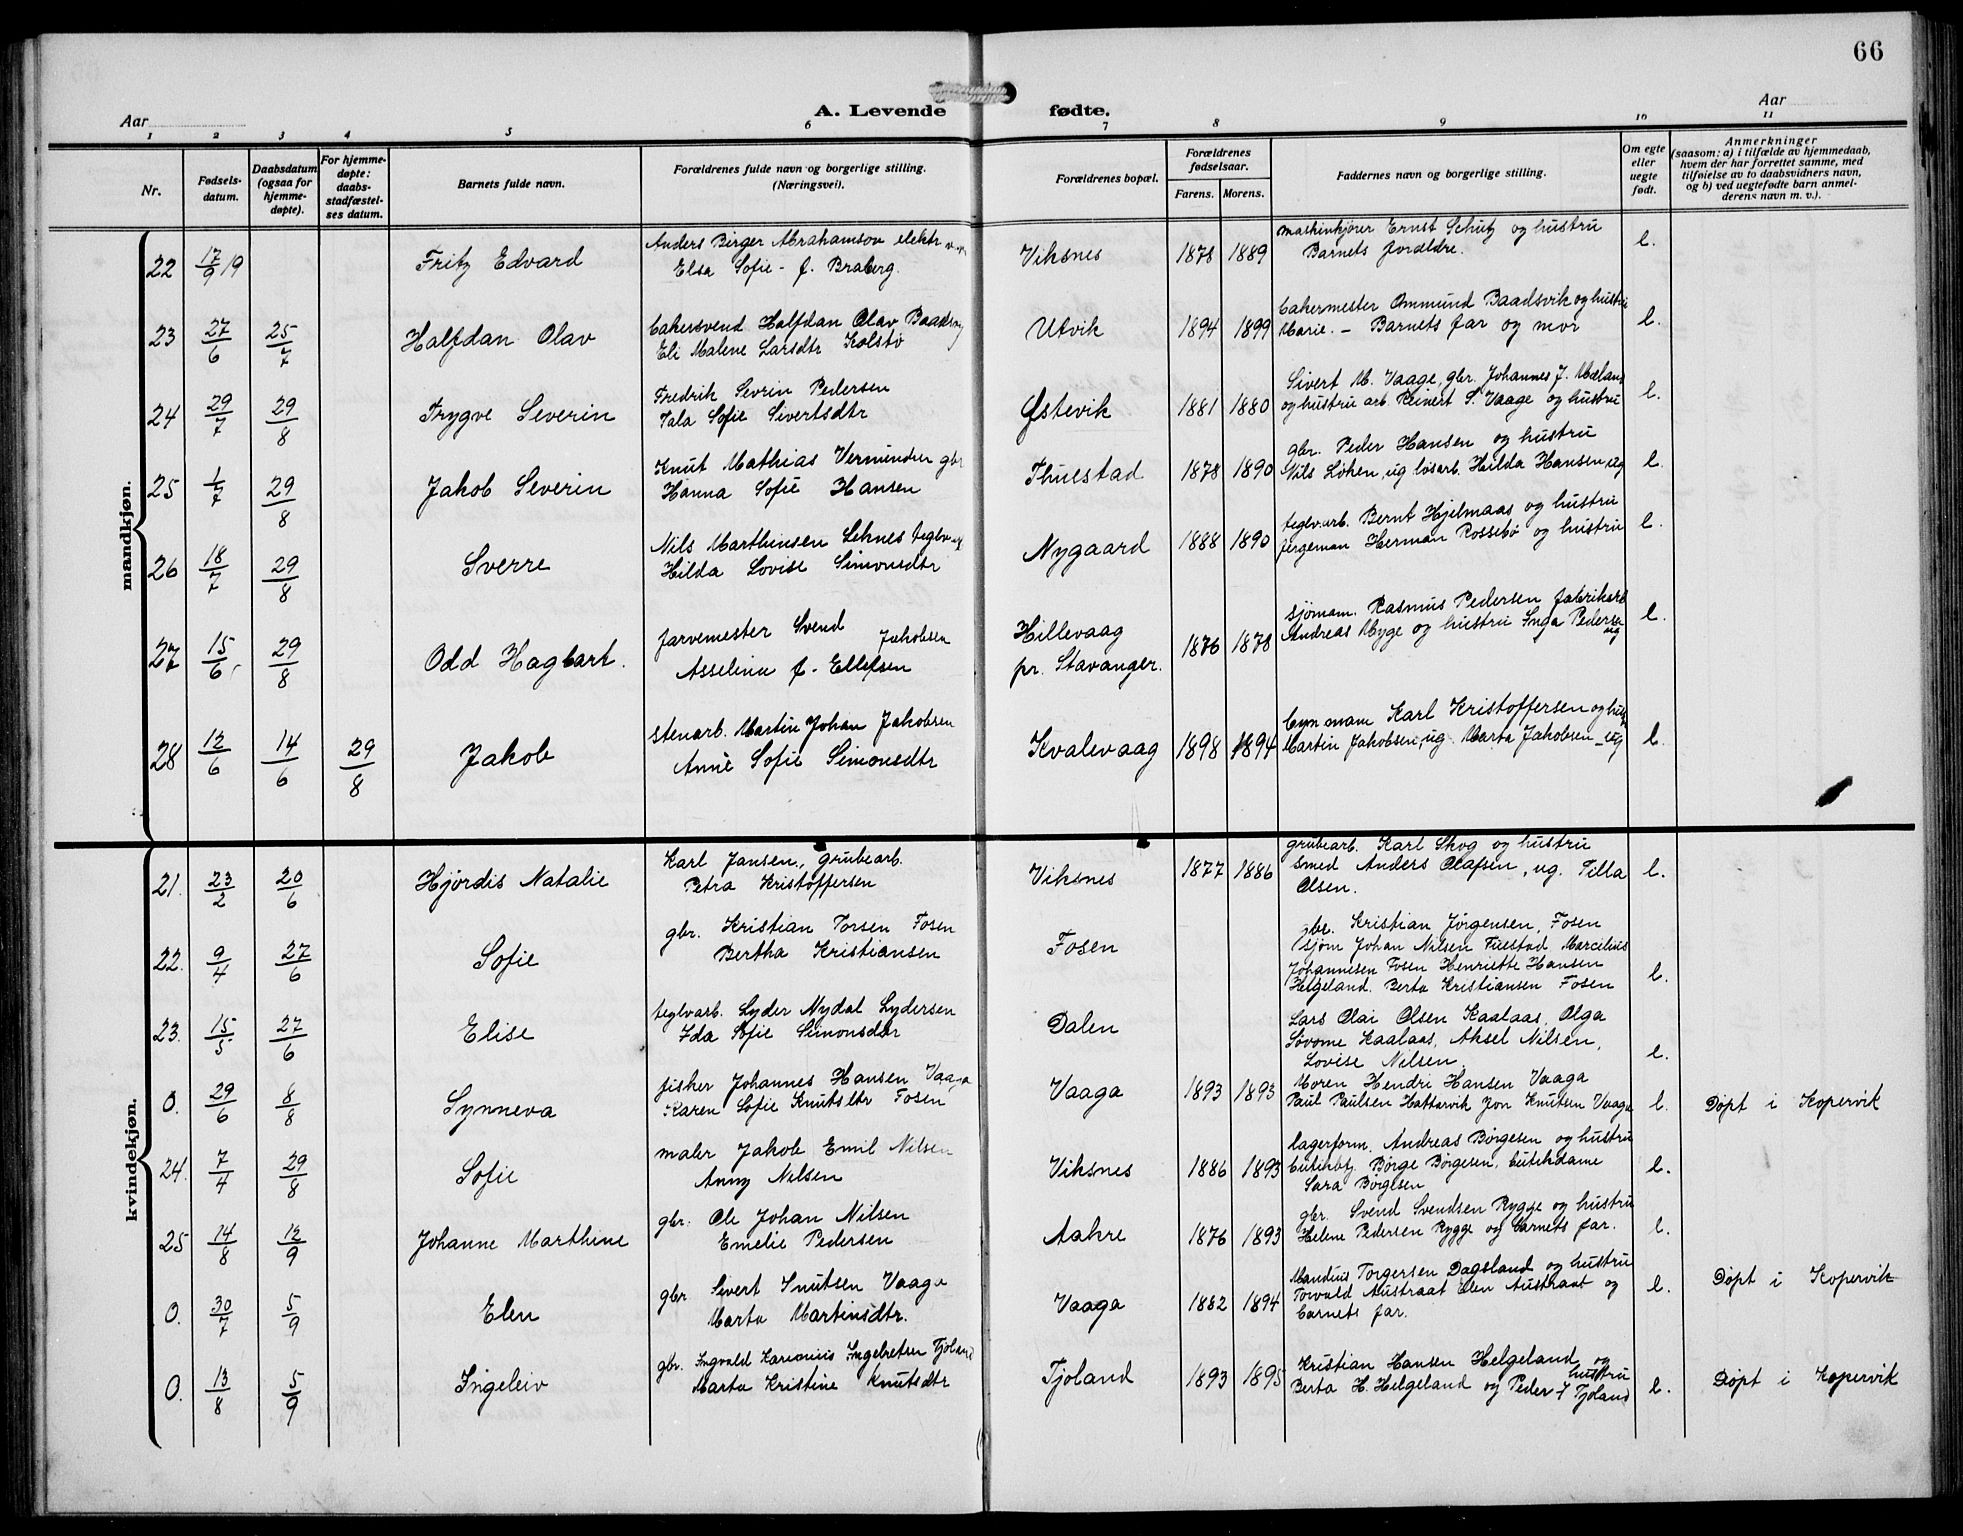 66
A. Levende fødte.
Aar
Aar
1 2 3 4 5 6 7 8 9 10 11
Nr.
Fødsels-
datum.
Daabsdatum
(ogsaa for
hjemme-
døpte).
For hjemme-
døpte:
daabs-
stadfæstel-
ses datum.
Barnets fulde navn.
Forældrenes fulde navn og borgerlige stilling.
(Næringsvei).
Forældrenes bopæl.
Forældrenes
fødselsaar.
Farens. Morens.
Faddernes navn og borgerlige stilling.
Om egte
eller
uegte
født.
Anmerkninger
(saasom: a) i tilfælde av hjemmedaab,
hvem der har forrettet samme, med
tilføielse av to daabsvidners navn,
og b) ved uegtefødte barn anmel-
derens navn m. v.).
mandkjøn.
22 17/9 19 Fritz Edvard
Anders Birger Abrahamsov elektr
Elsa Sofie - f. Braberg.
Viksnes 1878 1889
maskinkjører Ernst Schutz og hustru
Barnets forældre.
e.
23 27/6 25/7 Halfdan Olav
bakersvend Halfdan Olav
Eli Malene Larsdtr Kolstø
Utvik 1894 1899
bakermester Ommund Baadsvik og hustru
Marie. - Barnets far og mor
e.
24 29/7 29/8 Trygve Severin
Fredrik Sevrin Pedersen
Tala Sofie Sivertsdtr
Østevik 1881 1880
Sivert M. Vaage, gbr. Johannes J. Mæland
og hustru arb. Reinert S. Vaage og hustru
e.
25 1/7 29/8 Jakob Severin
Knut Mathias Vermundsen gbr
Hanna Sofie Hansen
Thuestad 1878 1890
gbr. Peder Hansen og hustru
Nils Løken, ug løsarb. Hilda Hansen, ug
e.
26 18/7 29/8 Sverre
Nils Marthinsen Seknes teglv
Hilda Lovise Simonsdtr
Nygaard 1888 1890
teglv.arb. Bernt Hjelmaas og hustru
fergeman Herman Rossebø og hustru
e.
27 15/6 29/8 Odd Hagbart.
farvemester Svend Jakobsen
Asseline f. Ellefsen
Hillevaag
pr. Stavanger. 1876 1878
sjømam. Rasmus Pedersen fabrikarb
Andreas Myge og hustru Inga Pedersen
ug
e.
28 12/6 14/6 29/8 Jakob
stenarb. Martin Johan Jakobsen
Anne Sofie Simonsdtr
Kvalevaag 1898 1894
bymmam Karl Kristoffersen og hust
Martin Jakobsen, ug. Marta Jakobsen - ug
e.
kvindekjøn.
21. 23/2 20/6 Hjørdis Natalie
Karl Jansen, grubearb.
Petra Kristoffersen
Viksnes 1877 1886
grubearb. Karl Skog og hustru
smed Anders Olafsen, ug. Tilla
Olsen.
e.
22. 9/4 27/6 Sofie
gbr. Kristian Torsen Fosen
Bertha Kristiansen
Fosen
gbr. Kristian Jørgensen, Fosen
sjøm Johan Nilsen Tuestad Marcelius
Johannesen Fosen Henriette Hansen
Helgeland. Berta Kristiansen Fosen
e.
23. 15/5 27/6 Elise
teglvarb. Lyder Nydal Lydersen
Ida Sofie Simonsdtr
Dalen
Lars Olai Olsen Kaalaas, Olga
Kaalaas, Aksel Nilsen,
Lovise Nilsen,
e.
0. 29/6 8/8 Synneva
fisker Johannes Hansen Vaaga
Karen Sofie Knutsdtr Fosen
Vaaga 1893 1893
Moren Hendri Hansen Vaaga
Paul Paulsen Hattarvik Jon Knutsen Vaaga
e. Døpt i Kopervik
24. 7/4 29/8 Sofie
maler Jakob Emil Nilsen
Anny Nilsen
Viksnes 1886 1893
lagerform. Andreas Børgesen og hustru
butikbtj. Børge Børgesen, butikdame
Sara Børgesen
e.
25 14/8 12/9 Johanne Marthine
gbr. Ole Johan Nilsen
Emelie Pedersen
Aakre 1876 1893
gbr. Svend Svendsen Rygge og hustru
Helene Pedersen Rygge og barnets far.
e.
0. 30/7 5/9 Elen
gbr Sivert Knutsen Vaaga
Marta Martinsdtr.
Vaaga 1882 1894
Mandius Torgersen Dagsland og hustru
Torvald Austraat Elen Austraat og
barnets far.
e. Døpt i Kopervik
0. 13/8 5/9 Ingeleiv
gbr. Ingvald Karenius Ingebretsen Tjoland
Marta Kristine Knutsdtr
Tjoland 1893 1895
Kristian Hansen Helgeland og
hustru
Berta H. Helgeland og Peder J Tjoland
e. Døpt i Kopervik